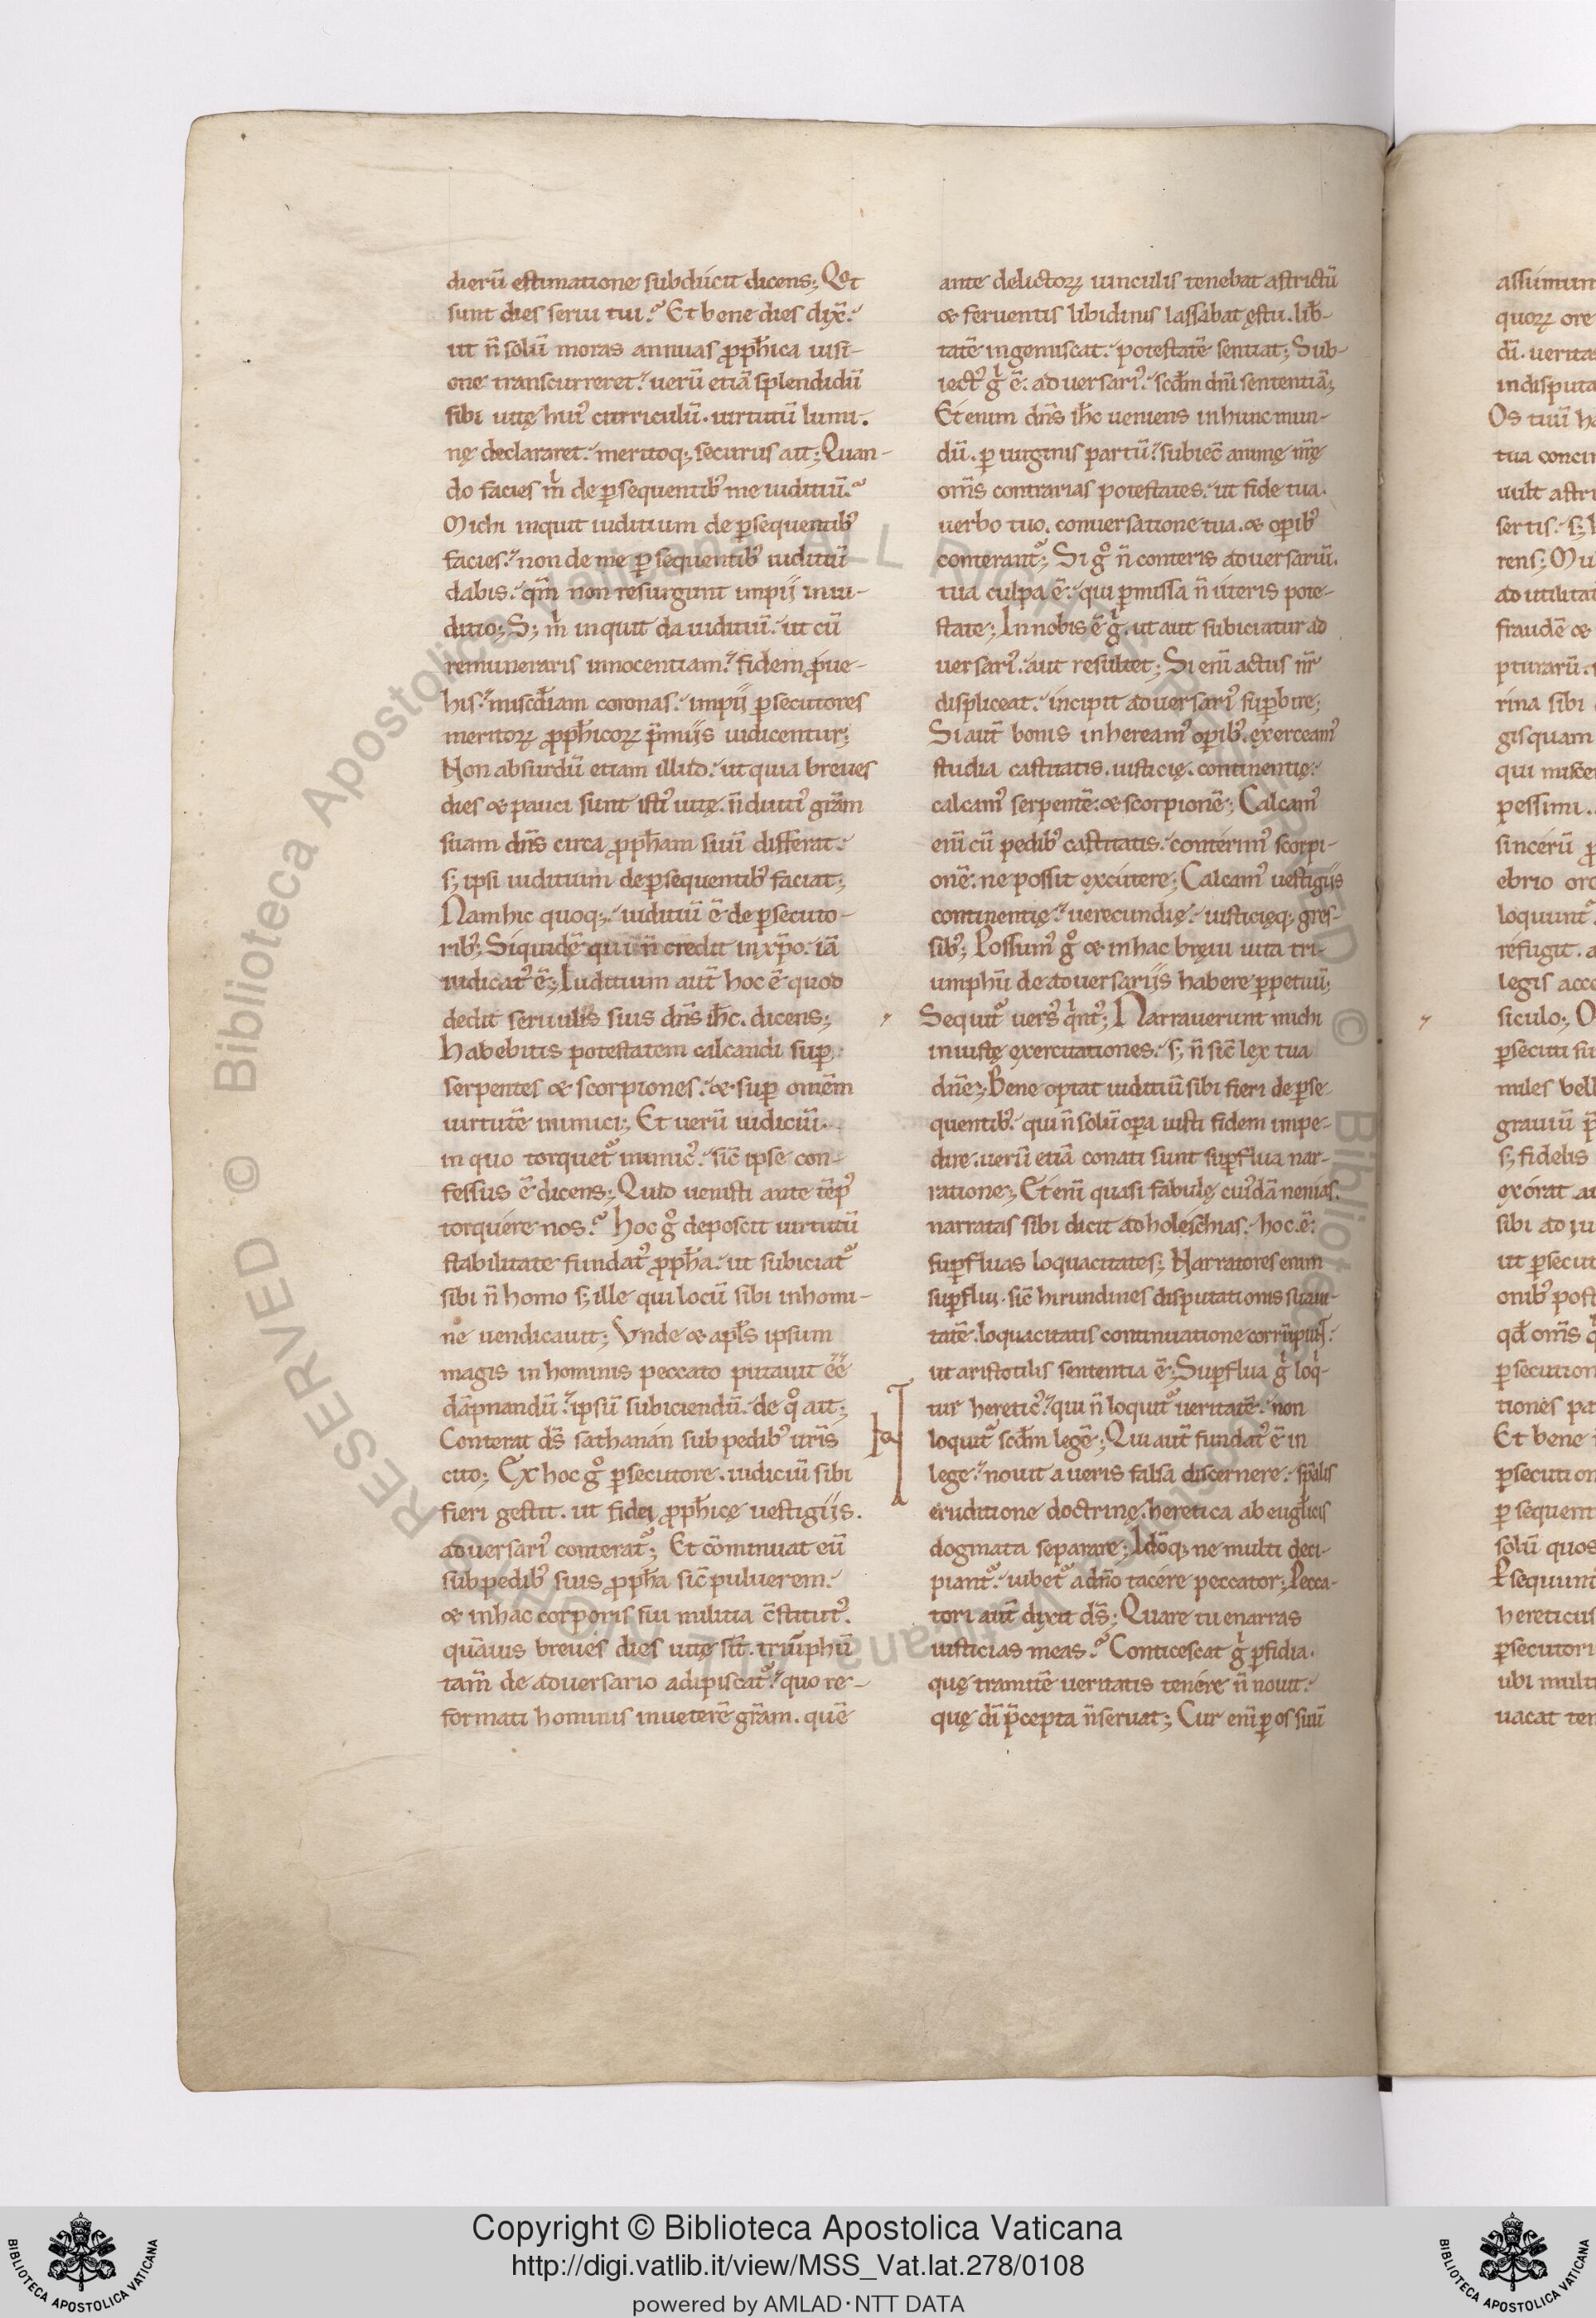 dierū estimatione subducit dicens; Qͦt
sunt dies serui tui.ˀ Et bene dies dix̄.
ut n̄ solū moras annuas ꝓph̄ica uisi-
one transcurreret. uerū etiā splendidū
sibi uitę huiꝰ curriculū. uirtutū lumi.
nę declararet. meritoq; securus ait; Quan-
do facies m̍ de ꝑsequentibꝰ me iuditiū.ˀ
Michi inquit iuditium de ꝑsequentibꝰ
facies. non de me ꝑsequentibꝰ iuditiū
dabis. qm̄ non resurgunt impii in iu-
ditio; S; m̍ inquit da iuditiū. ut cū
remuneraris innocentiam. fidem ꝓue-
his. miscđiam coronas. impii ꝑsecutores
meritoꝝ ꝓph̄icoꝝ p̄miis iudicentur;
Non absurdū etiam illud. ut quia breues
dies & pauci sunt istiꝰ uitę. n̄ diutiꝰ grām
suam dn̄s circa ꝓph̄am suū differat.
s; ipsi iuditium de ꝑsequentibꝰ faciat;
Nam hic quoq; iuditiū ē de ꝑsecuto-
ribꝰ; Siquidē qui n̄ credit in xp̄o. iā
iudicatꝰ ē; Iuditium aut̄ hoc ē quod
dedit seruulis suis dn̄s ih̄c. dicens;
Habebitis potestatem calcandi suꝑ
serpentes & scorpiones. & suꝑ omēm
uirtutē inimici; Et uerū iudiciū.
in quo torquet᷑ inimicꝰ. sic̄ ipse con-
fessus ē dicens; Quid uenisti ante tēpꝰ
torquere nos.ˀ Hoc gͦ deposcit uirtutū
stabilitate fundatꝰ ꝓph̄a. ut subiciat᷑
sibi n̄ homo s; ille qui locū sibi in homi-
ne uendicauit; Vnde & apl̄s ipsum
magis in hominis peccato putauit ēē
dāpnandū. ipsū subiciendū. de qͦ ait;
Conterat ds̄ sathanan sub pedibꝰ ur̄is
cito; Ex hoc gͦ ꝑsecutore. iudiciū sibi
fieri gestit. ut fidei ꝓph̄icę uestigiis.
aduersariꝰ conterat᷑; Et cōminuat eū
sub pedibꝰ suis ꝓph̄a sic̄ puluerem.
& in hac corporis sui militia c̄stitutꝰ.
quāuis breues dies uitę sīt. triūphū
tam̄ de aduersario adipiscat᷑. quo re-
formati hominis inueterē grām. quē
ante delictoꝝ uinculis tenebat astrictū
& feruentis libidinis lassabat ęstu. lib̄-
tatē ingemiscat. potestatē sentiat; Sub-
iectꝰ g̍ ē. aduersariꝰ. scđm dn̄i sententiā;
Etenim dn̄s ih̄c ueniens in hunc mun-
dū. ꝑ uirginis partū. subiec̄ animę nr̄ę
om̄s contrarias potestates. ut fide tua.
uerbo tuo. conuersatione tua. & oꝑibꝰ
conterant᷑; Si gͦ n̄ conteris aduersariū.
tua culpa ē. qui ꝑmissa n̄ uteris pote-
state; In nobis ē g̍. ut aut subiciatur ad
uersariꝰ. aut resultet; Si enī actus nr̄
displiceat. incipit aduersariꝰ suꝑbire;
Si aut̄ bonis inhereamꝰ oꝑibꝰ. exerceamꝰ
studia castitatis. iusticię. continentię.
calcamꝰ serpentē. & scorpionē; Calcamꝰ
enī cū pedibꝰ castitatis. conterimꝰ scorpi-
onē. ne possit excutere; Calcamꝰ uestigiis
continentię. uerecundię. iusticięq; gres-
sibꝰ; Possumꝰ gͦ & in hac breui uita tri-
umphū de aduersariis habere ꝑpetuū;
Sequit᷑ uersꝰ q̍ntꝰ; Narrauerunt michi
iniustę exercitationes. s; n̄ sic̄ lex tua
dn̄e; Bene optat iuditiū sibi fieri de ꝑse-
quentibꝰ. qui n̄ solū oꝑa iusti fidem impe-
dire. uerū etiā conati sunt suꝑflua nar-
ratione; Etenī quasi fabulę cuiꝰdā nenias.
narratas sibi dicit adholeschias. hoc. ē.
suꝑfluas loquacitates; Narratores enim
suꝑflui. sic̄ hirundines disputationis suaui-
tatē. loquacitatis continuatione corrūpūt.
ut aristotilis sententia ē; Suꝑflua g̍ loq̍-
tur hereticꝰ. qui n̄ loquit᷑ ueritatē. non
loquit᷑ scđm legē; Qui aut̄ fundatꝰ ē in
lege. nouit a ueris falsa discernere. sp̄alis
eruditione doctrinę. heretica ab eugl̄icis
dogmata separare; Idōq; ne multi deci-
piant᷑. iubet᷑ a dn̄o tacere peccator; Pecca-
tori aut̄ dixit ds̄; Quare tu enarras
iusticias meas.ˀ Conticescat g̍ ꝑfidia.
quę tramitē ueritatis tenere n̄ nouit.
quę dī p̄cepta n̄ seruat; Cur enī ꝑ os suū
Copyright © Biblioteca Apostolica Vaticana
http://digi.vatlib.it/view/MSS_Vat.lat.278/0108
powered by AMLAD·NTT DATA
BIBLIOTECA APOSTOLICA VATICANA
BIBLIOTECA APOSTOLICA VATICANA